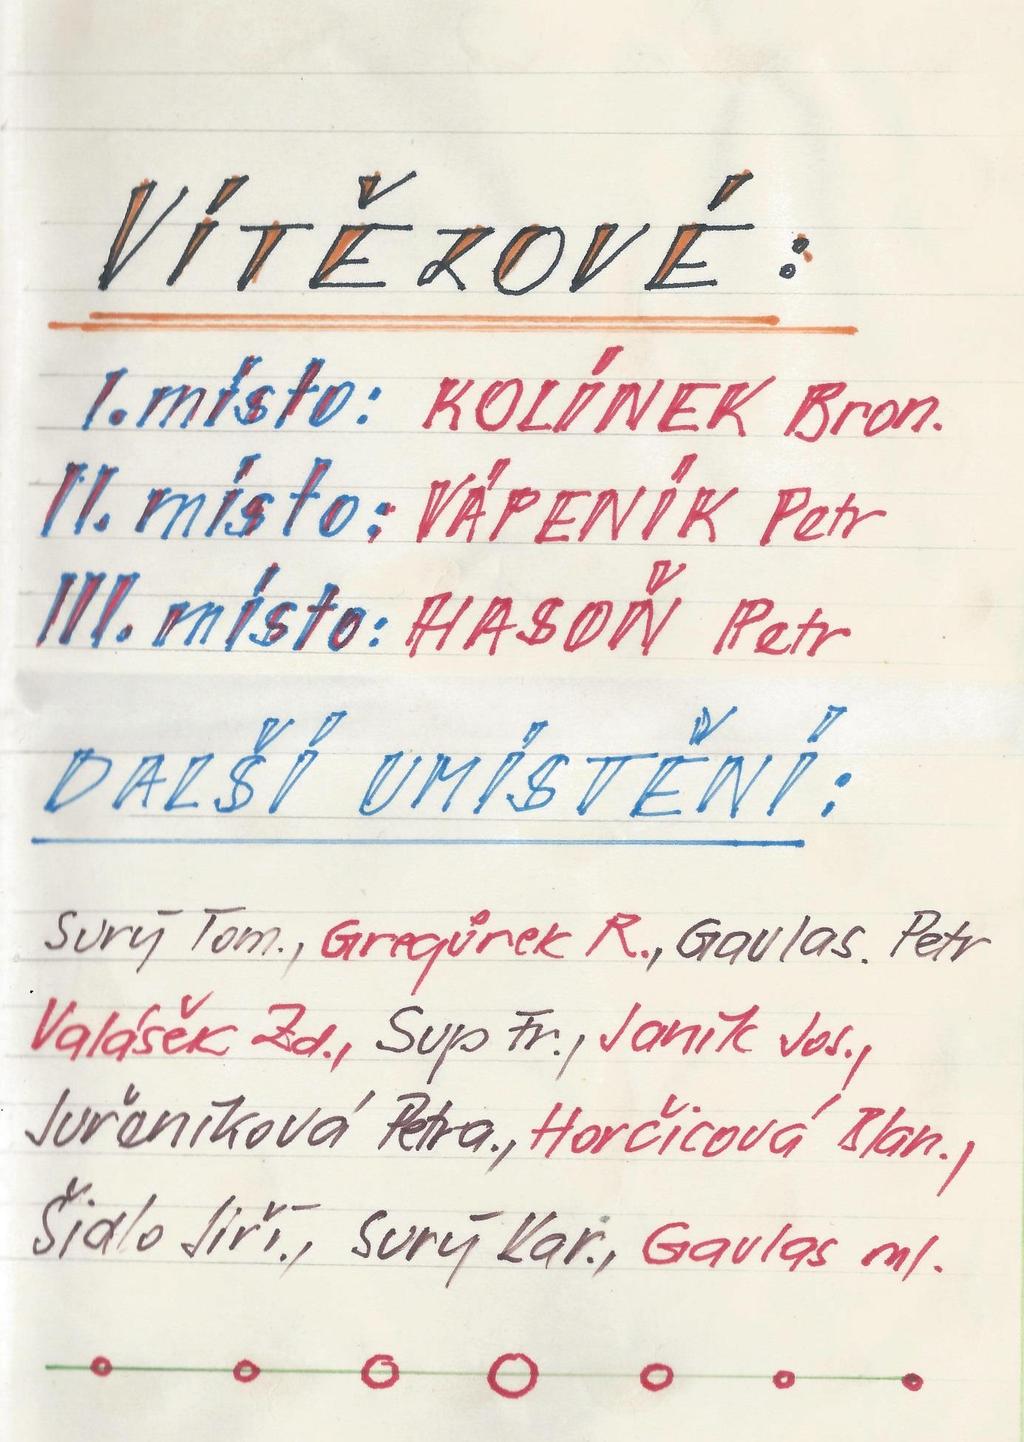 VÍTĚZOVÉ:
I. místo: KOLÍNEK Bron.
II. místo: VÁPENÍK Petr
III. místo: HASOŇ Petr
DALŠÍ UMÍSTĚNÍ:
Surý Tom., Gregůrek R., Gavlas. Petr
Valášek Zd., Sup Fr., Janík Jos.,
Juřeníková Petra., Horčicová Blan.,
Šidlo Jiří., Surý Kar., Gavlas ml.